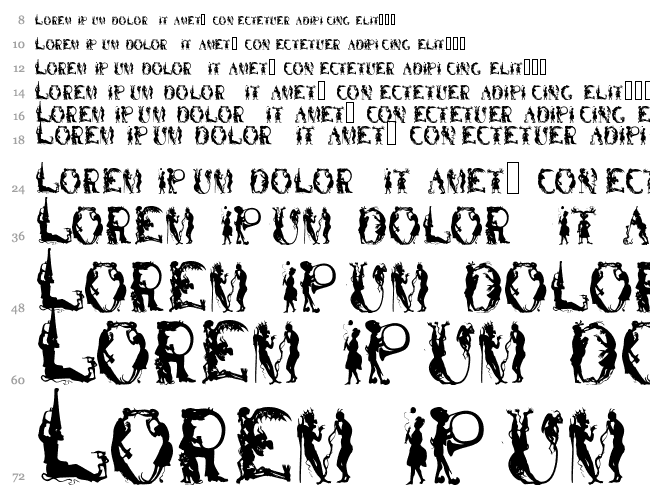 8 Lorem ip um dolor it amet□ con ectetuer adipi cing elit□□□
10 Lorem ip um dolor it amet□ con ectetuer adipi cing elit□□□
12 Lorem ip um dolor it amet□ con ectetuer adipi cing elit□□□
14 Lorem ip um dolor it amet□ con ectetuer adipi cing elit□□□
16 Lorem ip um dolor it amet□ con ectetuer adipi cing elit
18 Lorem ip um dolor it amet□ con ectetuer adipi
24 Lorem ip um dolor it amet□ con ect
36 Lorem ip um dolor it a
48 Lorem ip um dolor
60 Lorem ip um do
72 Lorem ip um